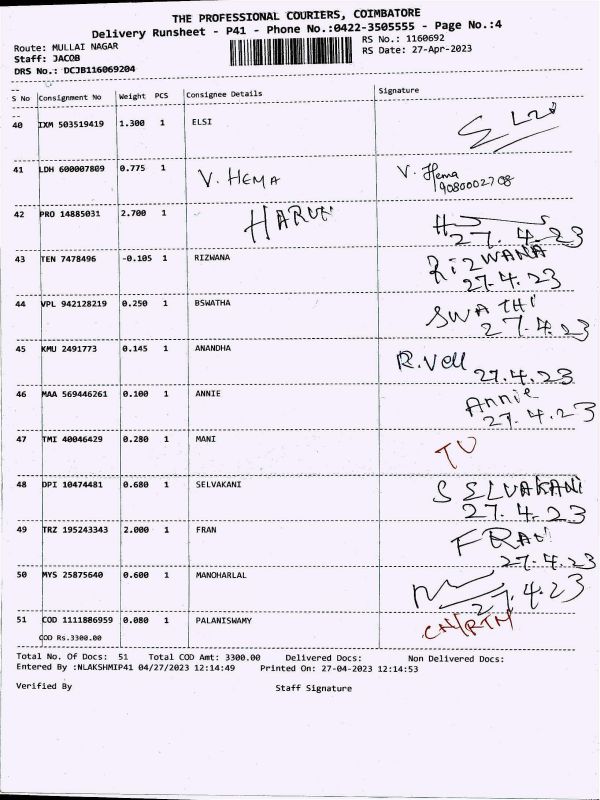 THE PROFESSIONAL COURIERS, COIMBATORE
Delivery Runsheet - P41 - Phone No.:0422-3505555 - Page No.:4
Route: MULLAI NAGAR RS No.: 1160692
Staff: JACOB RS Date: 27-Apr-2023
DRS No.: DCJB116069204
S No Consignment No Weight PCS Consignee Details Signature
40 IXM 503519419 1.300 1 ELSI
41 LDH 600007809 0.775 1 V. HEMA V. Hema
9080002708
42 PRO 14885031 2.700 1 HARUN
27.4.23
43 TEN 7478496 -0.105 1 RIZWANA RIZWANA
27.4.23
44 VPL 942128219 0.250 1 BSWATHA SWATHI
27.4.23
45 KMU 2491773 0.145 1 ANANDHA R.Vell
27.4.23
46 MAA 569446261 0.100 1 ANNIE Annie
27.4.23
47 TMI 40046429 0.280 1 MANI
48 DPI 10474481 0.680 1 SELVAKANI S SELVAKANI
27.4.23
49 TRZ 195243343 2.000 1 FRAN FRAN
27.4.23
50 MYS 25875640 0.600 1 MANOHARLAL
27.4.23
51 COD 1111886959 0.080 1 PALANISWAMY CN/RTN
COD Rs.3300.00
Total No. Of Docs: 51 Total COD Amt: 3300.00 Delivered Docs: Non Delivered Docs:
Entered By :NLAKSHMIP41 04/27/2023 12:14:49 Printed On: 27-04-2023 12:14:53
Verified By Staff Signature